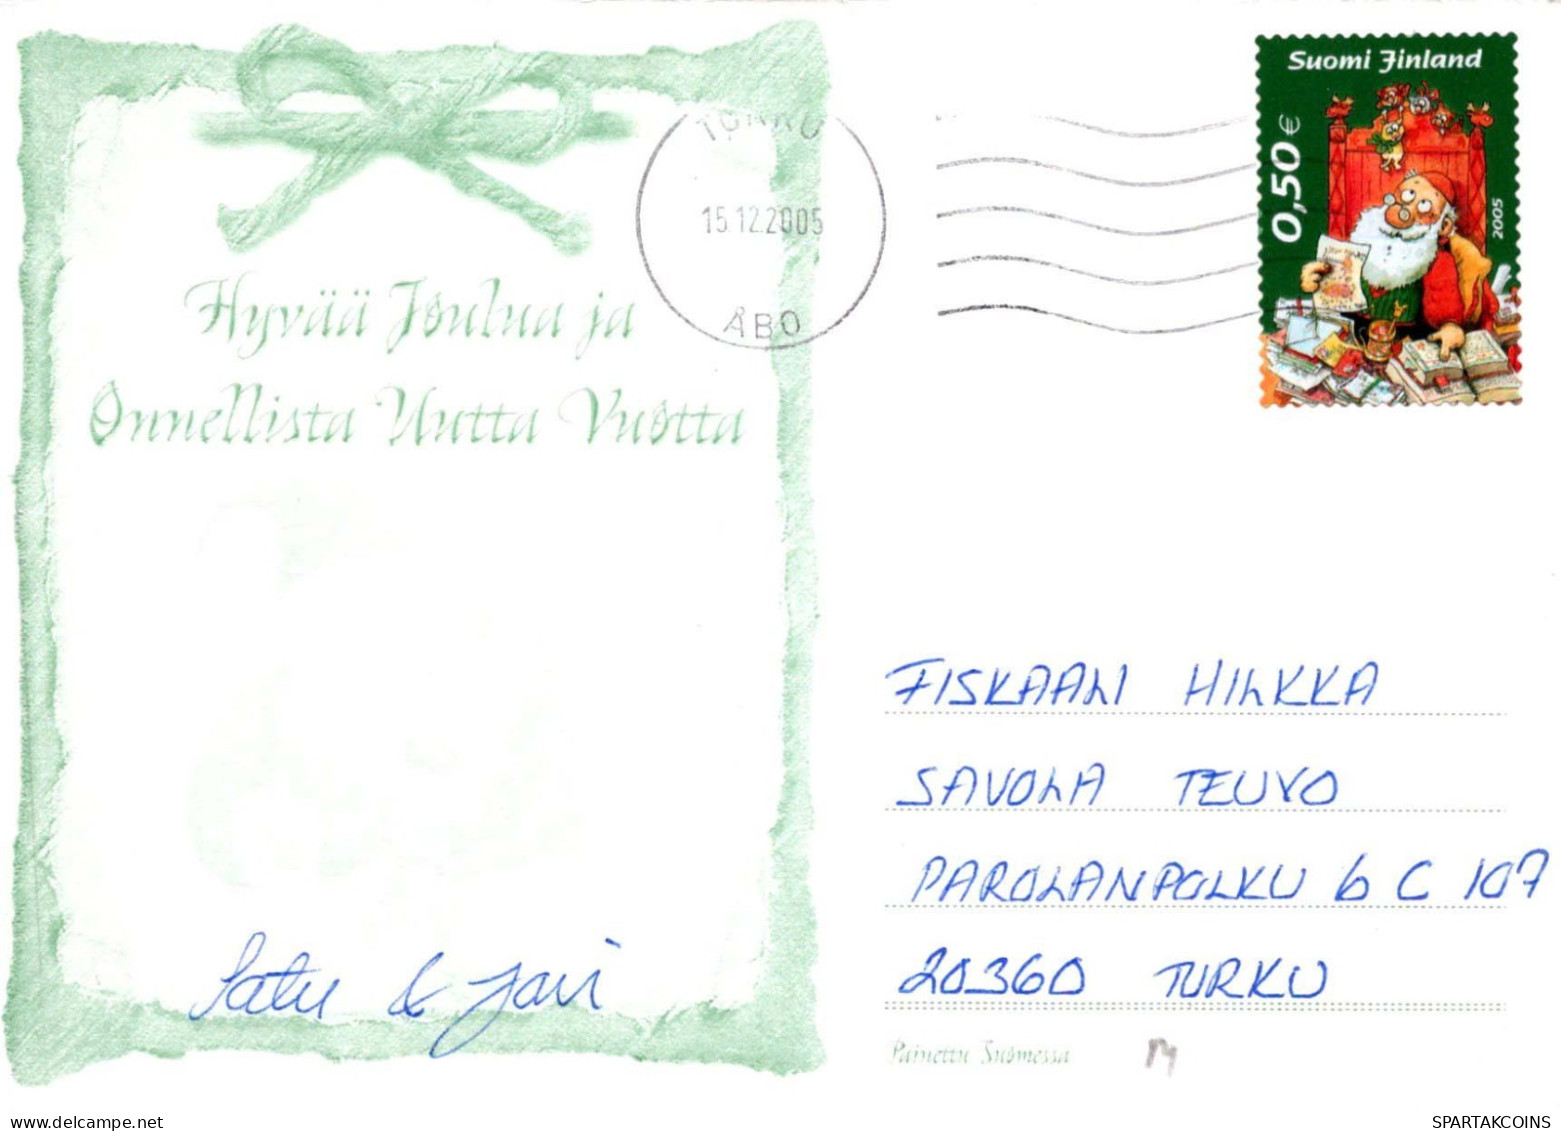 Suomi Finland
0,50 €
2005
TURKU
15.12.2005
ÅBO
Hyvää Joulua ja
Onnellista Uutta Vuotta
FISKAALI HILKKA
SAVOLA TEUVO
PAROLANPOLKU 6 C 107
20360 TURKU
Satu & Jari
Painettu Suomessa
SPARTAKCOINS
https://www.delcampe.net